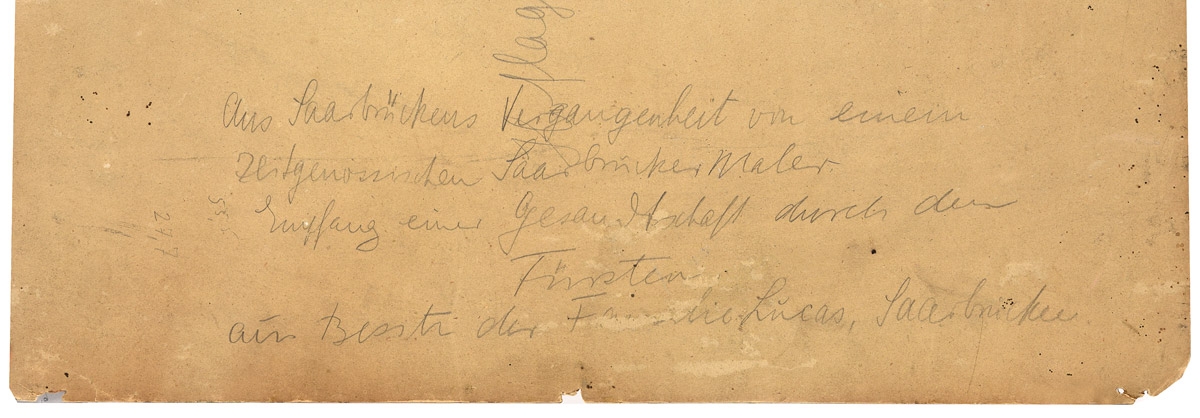 Aus Saarbrückens Vergangenheit von einem
Zeitgenössischen Saarbrücker Maler.
Empfang einer Gesandtschaft durch den
Fürsten
aus Besitz der Familie Lucas, Saarbrücken